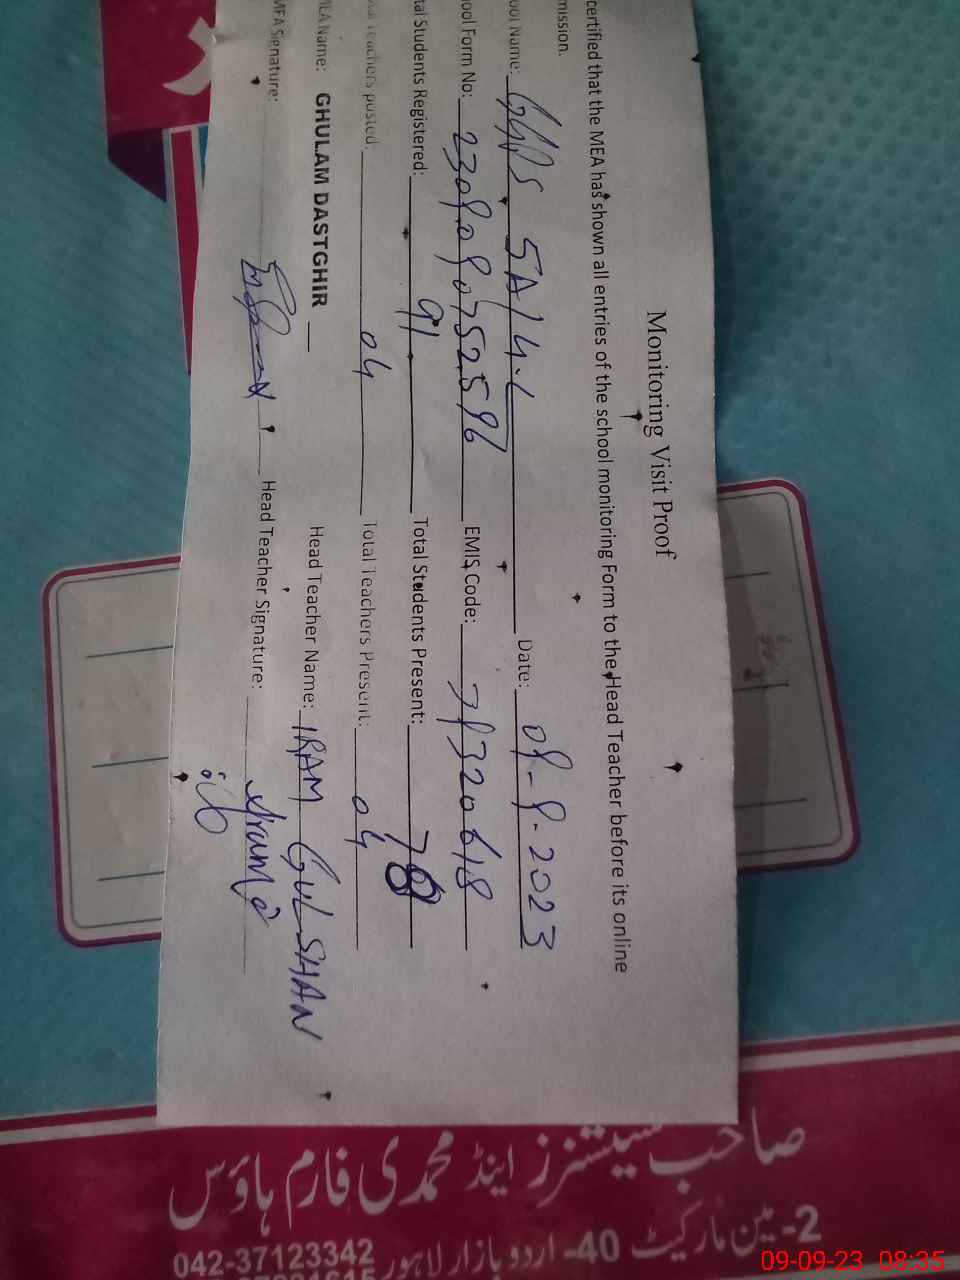 Monitoring Visit Proof
certified that the MEA has shown all entries of the school monitoring Form to the Head Teacher before its online
mission.
ool Name: GGPS 5A/4.L Date: 09-9-2023
ool Form No: 230909752596 EMIS Code: 39320618
tal Students Registered: 91 Total Students Present:
tal Teachers posted: 04 Total Teachers Present: 04
MEA Name: GHULAM DASTGHIR Head Teacher Name: IRAM GULSHAN
MEA Signature: Head Teacher Signature:
صاحب سٹیشنرز اینڈ محمدی فارم ہاؤس
2-مین مارکیٹ 40-اردو بازار لاہور 042-37123342
09-09-23 08:35